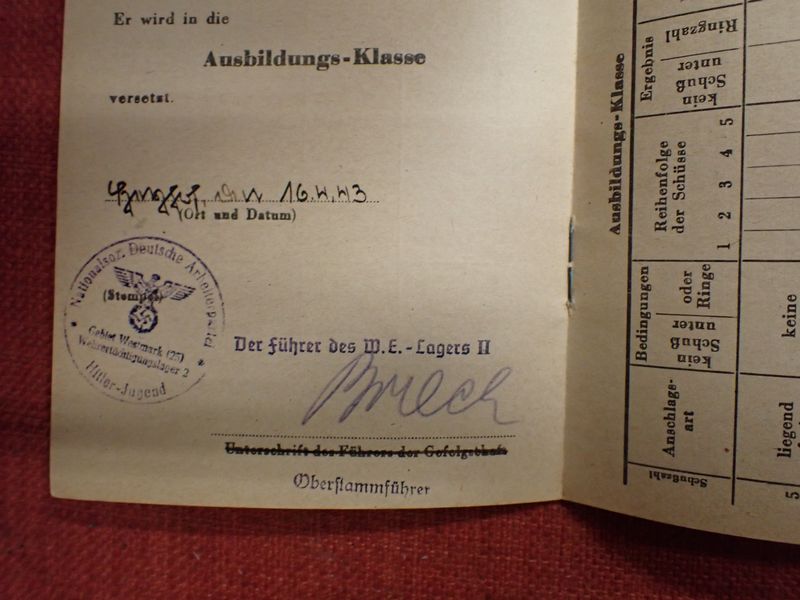 Er wird in die
Ausbildungs-Klasse
versetzt.
den 16.4.43
(Ort und Datum)
Nationalsoz. Deutsche Arbeiterpartei
(Stempel)
Gebiet Westmark (25)
Wehrertüchtigungslager 2
Hitler-Jugend
Der Führer des W.E.-Lagers II
Unterschrift des Führers der Gefolgschaft
Oberstammführer
Ausbildungs-Klasse
Schußzahl
Anschlags-
art
Bedingungen
kein
Schuß
unter
oder
Ringe
Reihenfolge
der Schüsse
1 2 3 4 5
Ergebnis
kein
Schuß
unter
Ringzahl
5
liegend
keine